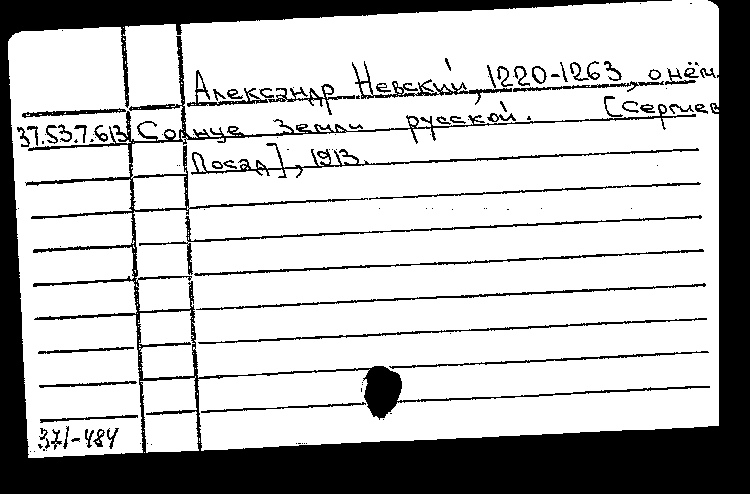 Александр Невский, 1220-1263, о нём.
37.53.7.613 Солнце земли русской. [Сергиев
Посад], 1913.
371-484